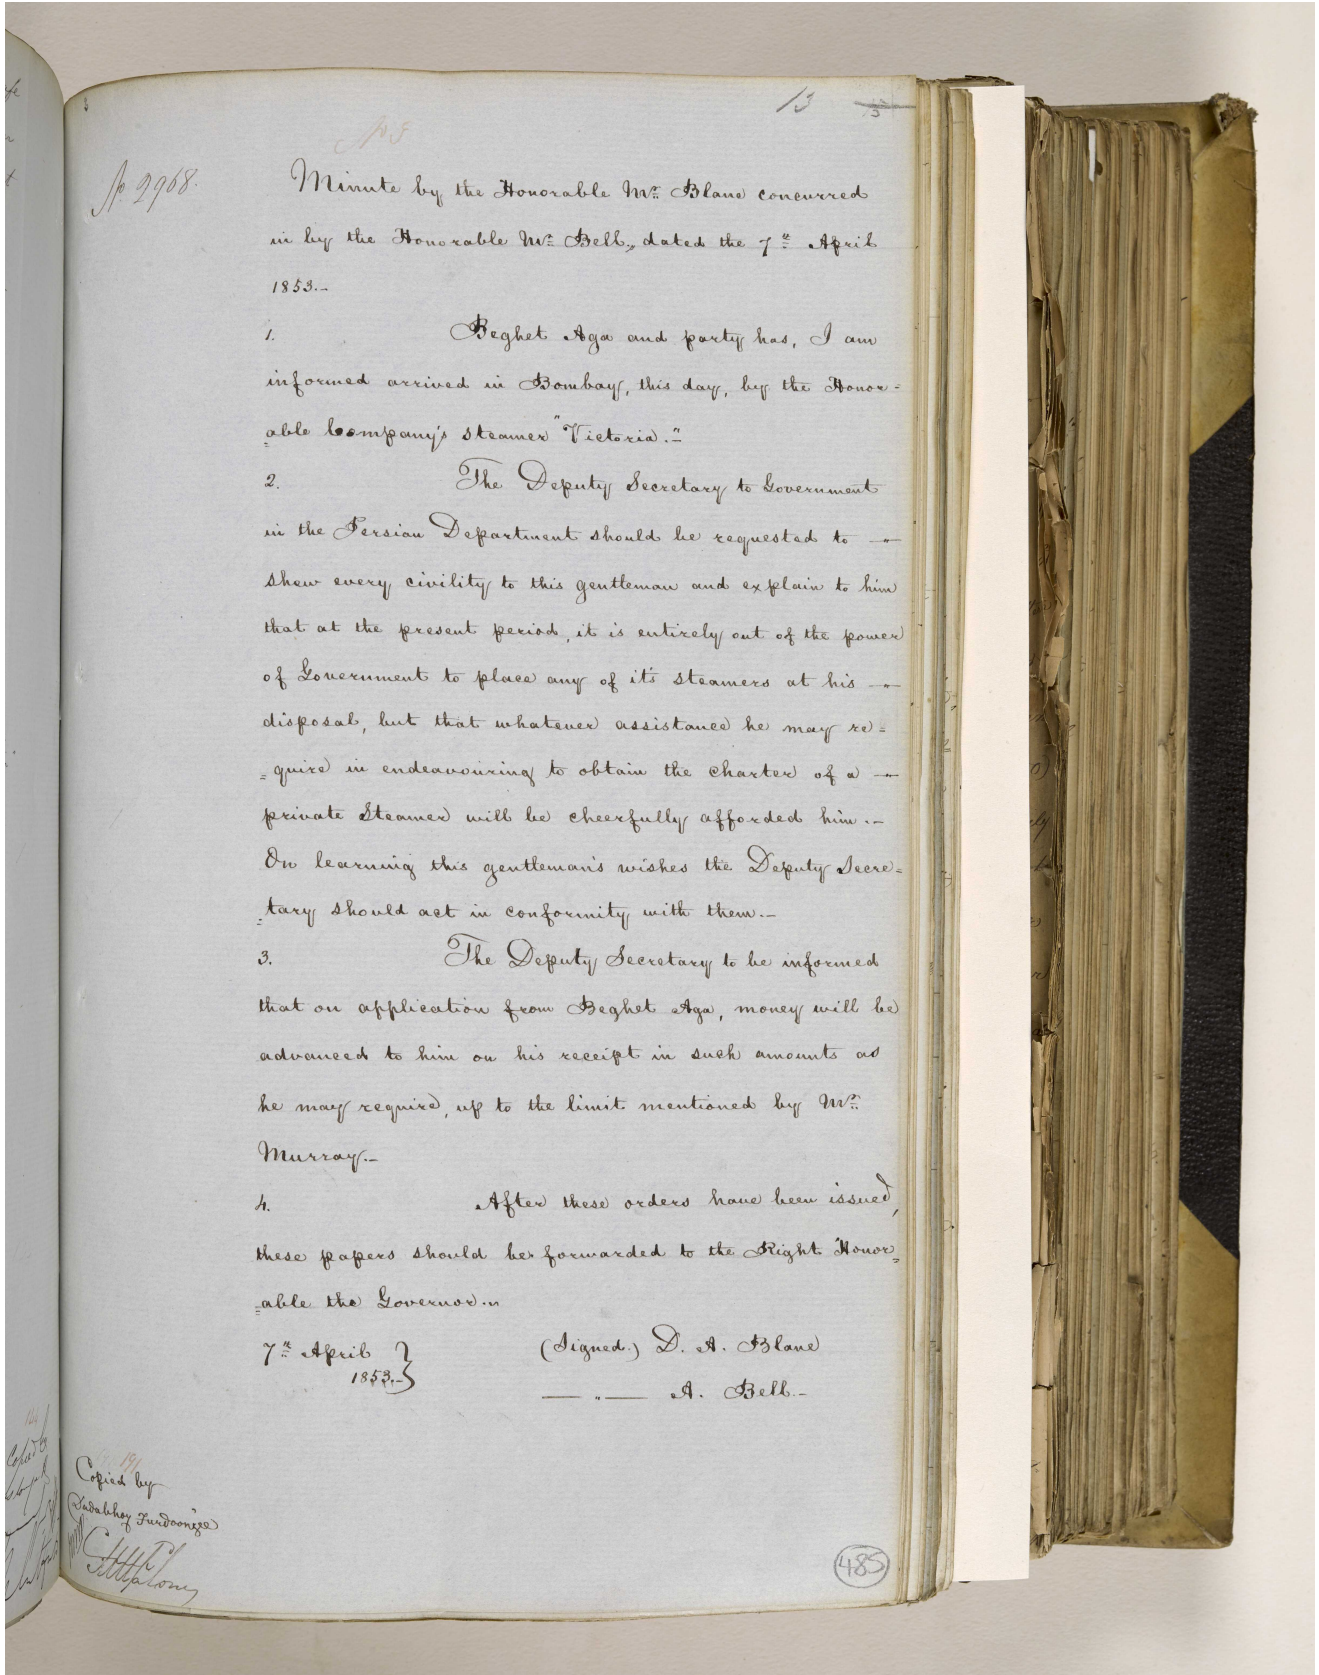 13
No 8
No. 2968.
Minute by the Honorable Mr. Blane concurred
in by the Honorable Mr. Bell, dated the 7th April
1853.-
1. Beghet Aga and party has, I am
informed arrived in Bombay, this day, by the Honor=
=able Company's steamer "Victoria."
2. The Deputy Secretary to Government
in the Persian Department should be requested to
shew every civility to this gentleman and explain to him
that at the present period, it is entirely out of the power
of Government to place any of it's steamers at his
disposal, but that whatever assistance he may re=
=quire in endeavouring to obtain the charter of a
private Steamer will be cheerfully afforded him.-
On learning this gentleman's wishes the Deputy Secre=
=tary should act in conformity with them.-
3. The Deputy Secretary to be informed
that on application from Beghet Aga, money will be
advanced to him on his receipt in such amounts as
he may require, up to the limit mentioned by Mr.
Murray.-
4. After these orders have been issued,
these papers should be forwarded to the Right Honor=
=able the Governor.
7th April (Signed.) D. A. Blane
1853.- — " — A. Bell.-
191
Copied by
Dadabhoy Furdoonjee
485